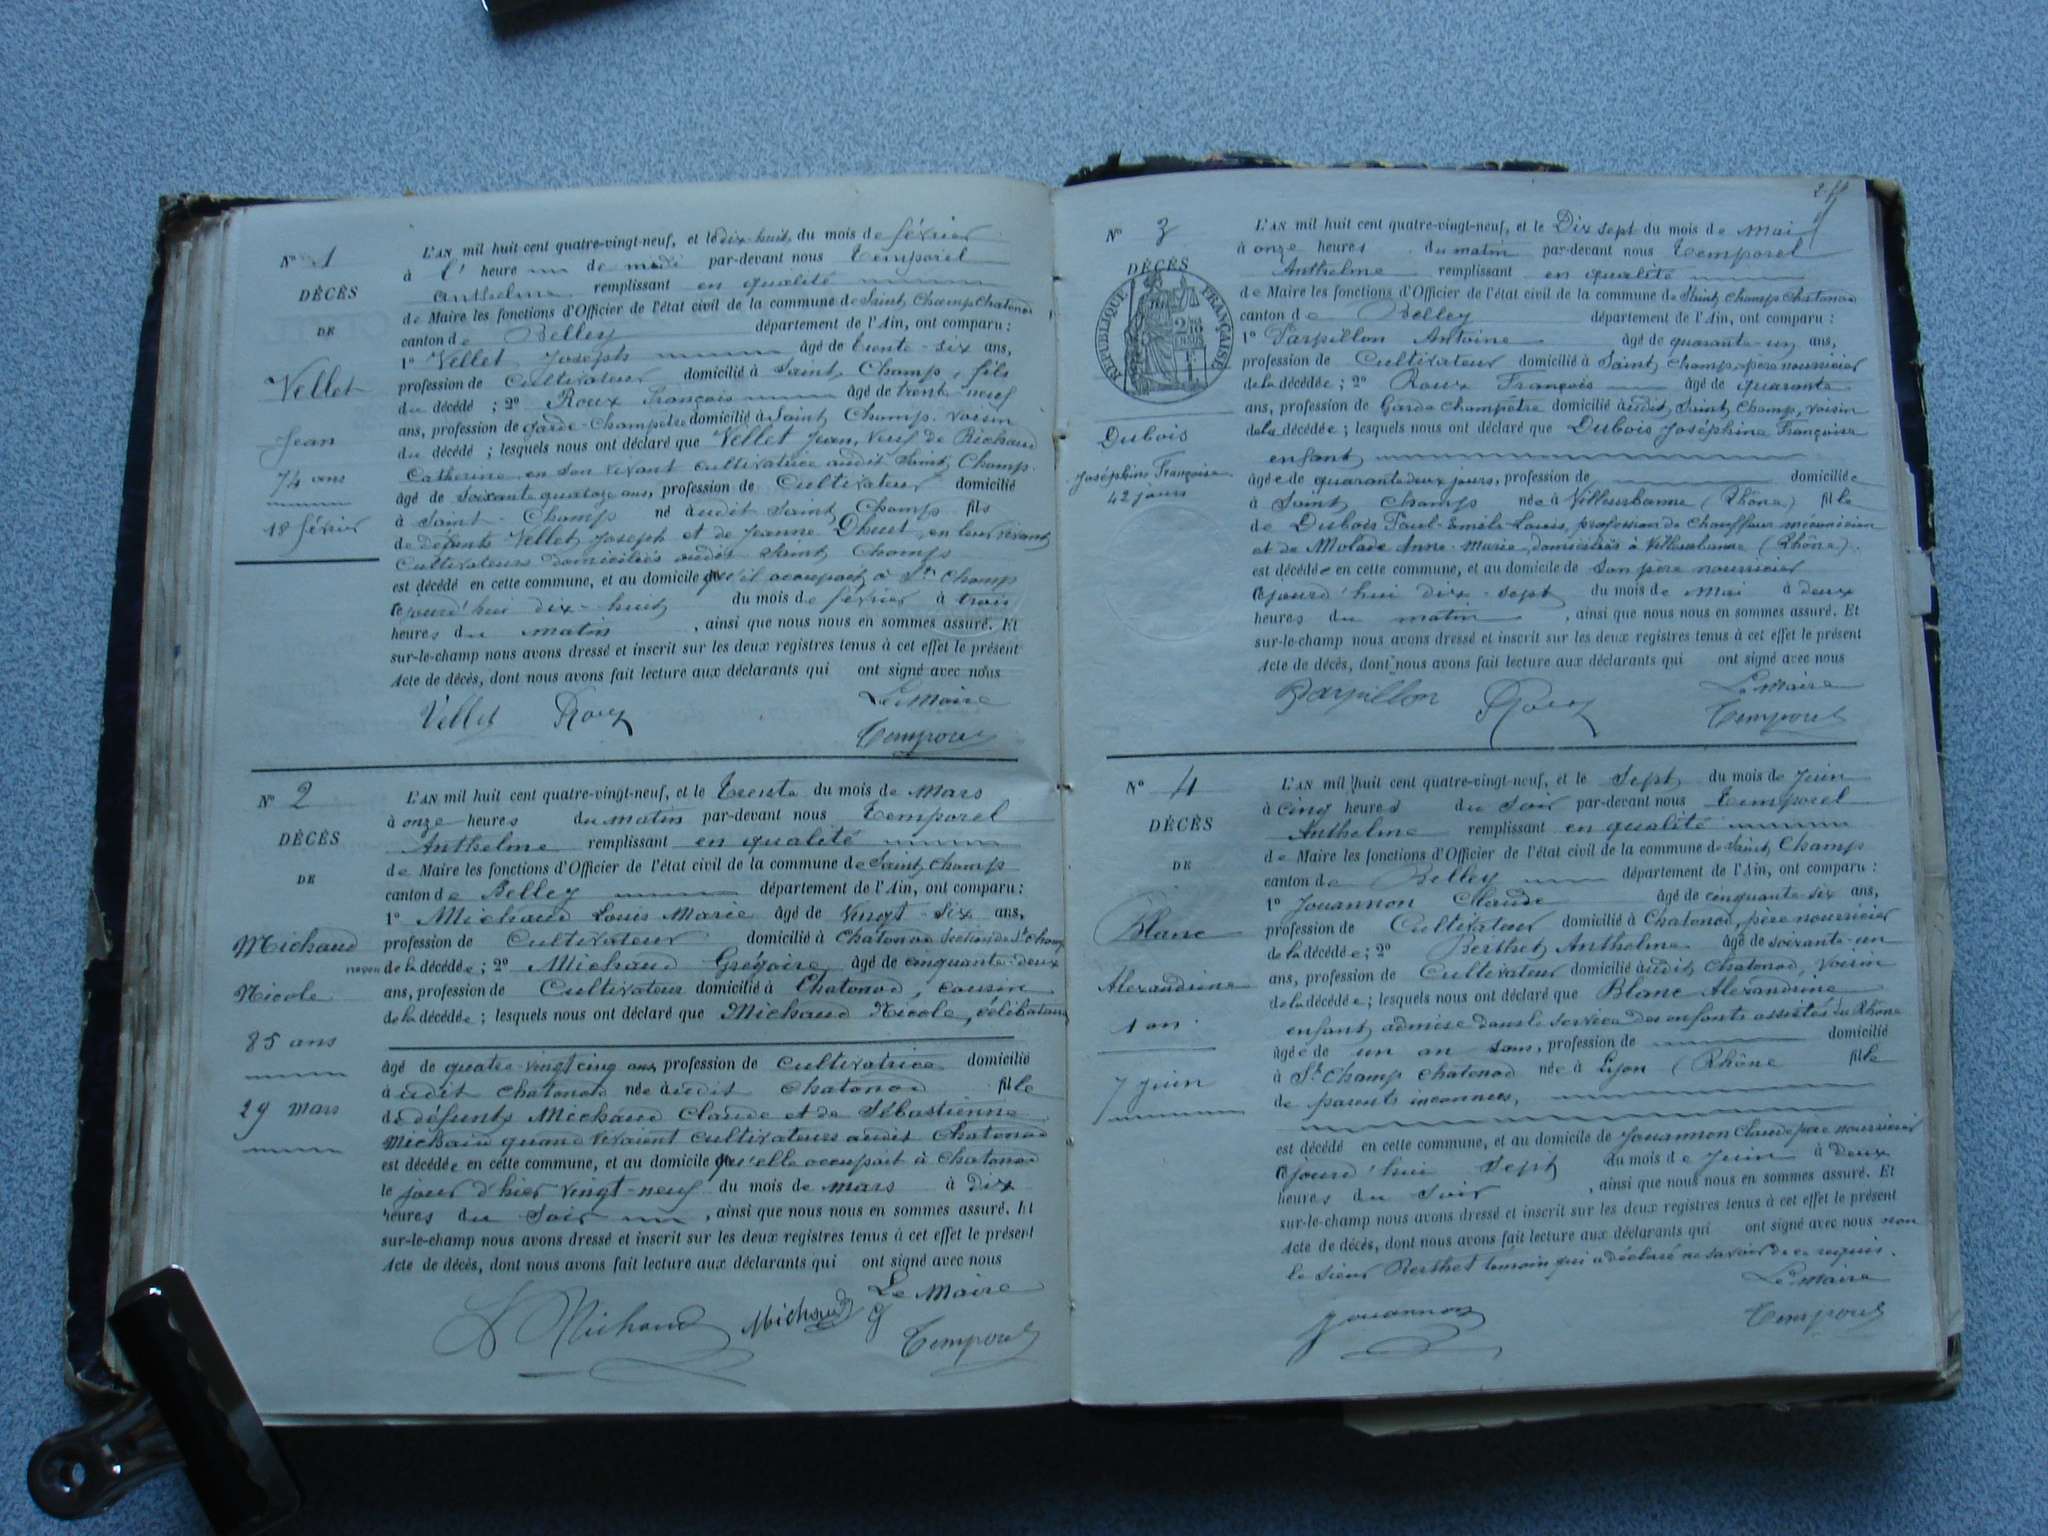 N° 1
DÉCÈS
DE
Vellet
Jean
74 ans
18 février
L'AN mil huit cent quatre-vingt-neuf, et le dix-huit du mois de février
à l' heure de midi par-devant nous Temporel
Anthelme remplissant en qualité
de Maire les fonctions d'Officier de l'état civil de la commune de Saint Champ Chatonod
canton de Belley département de l'Ain, ont comparu :
1° Vellet Joseph âgé de trente-six ans,
profession de Cultivateur domicilié à Saint Champ, fils
du décédé ; 2° Roux François âgé de trente-neuf
ans, profession de garde-Champêtre domicilié à Saint Champ. voisin
du décédé ; lesquels nous ont déclaré que Vellet Jean, Veuf de Richard
Catherine en son vivant cultivatrice audit Saint Champ.
âgé de soixante quatorze ans, profession de Cultivateur domicilié
à Saint-Champ né à udit Saint Champ fils
de défunts Vellet Joseph et de Jeanne en leur vivant
Cultivateurs domiciliés audit Saint Champ
est décédé en cette commune, et au domicile qu'il occupait à St Champ
cejourd'hui dix-huit du mois de février à trois
heures du matin , ainsi que nous nous en sommes assuré. Et
sur-le-champ nous avons dressé et inscrit sur les deux registres tenus à cet effet le présent
Acte de décès, dont nous avons fait lecture aux déclarants qui ont signé avec nous
Le Maire
Vellet Roux
Temporel
N° 2
DÉCÈS
DE
Michaud
Nicole
85 ans
29 mars
L'AN mil huit cent quatre-vingt-neuf, et le Trente du mois de Mars
à onze heures du matin par-devant nous Temporel
Anthelme remplissant en qualité
de Maire les fonctions d'Officier de l'état civil de la commune de Saint Champ
canton de Belley département de l'Ain, ont comparu :
1° Michaud Louis Marie âgé de Vingt-six ans,
profession de Cultivateur domicilié à Chatonod section de St Champ
neveu de la décédée ; 2° Michaud Grégoire âgé de cinquante-deux
ans, profession de Cultivateur domicilié à Chatonod, cousin
de la décédée ; lesquels nous ont déclaré que Michaud Nicole, célibataire
âgé de quatre vingt cinq ans profession de cultivatrice domicilié
à udit Chatonod née à udit Chatonod fille
de défunts Michaud Claude et de Sébastienne
Michaud quand vivaient cultivateurs audit Chatonod
est décédée en cette commune, et au domicile qu'elle occupait à Chatonod
le jour d'hier vingt-neuf du mois de mars à dix
heures du soir , ainsi que nous nous en sommes assuré. Et
sur-le-champ nous avons dressé et inscrit sur les deux registres tenus à cet effet le présent
Acte de décès, dont nous avons fait lecture aux déclarants qui ont signé avec nous
Le Maire
L Michaud Michaud g
Temporel
N° 3
DÉCÈS
RÉPUBLIQUE FRANÇAISE
Dubois
Joséphine Françoise
42 jours
L'AN mil huit cent quatre-vingt-neuf, et le Dix sept du mois de Mai
à onze heures du matin par-devant nous Temporel
Anthelme remplissant en qualité
de Maire les fonctions d'Officier de l'état civil de la commune de Saint Champ Chatonod
canton de Belley département de l'Ain, ont comparu :
1° Parpillon Antoine âgé de quarante-un ans,
profession de Cultivateur domicilié à Saint Champ, père nourricier
de la décédée ; 2° Roux François âgé de quarante
ans, profession de Garde Champêtre domicilié à udit Saint Champ, voisin
de la décédée ; lesquels nous ont déclaré que Dubois Joséphine Françoise
enfant
âgée de quarante deux jours, profession de domiciliée
à Saint Champ née à Villeurbanne (Rhône) fille
de Dubois Paul-Émile Louis, profession de Chauffeur mécanicien
et de Molade Anne-Marie, domiciliés à Villeurbanne (Rhône).
est décédée en cette commune, et au domicile de son père nourricier
cejourd'hui dix-sept du mois de Mai à deux
heures du matin , ainsi que nous nous en sommes assuré. Et
sur-le-champ nous avons dressé et inscrit sur les deux registres tenus à cet effet le présent
Acte de décès, dont nous avons fait lecture aux déclarants qui ont signé avec nous
Le Maire
Parpillon Roux
Temporel
N° 4
DÉCÈS
DE
Blanc
Alexandrine
1 an
7 juin
L'AN mil huit cent quatre-vingt-neuf, et le Sept du mois de Juin
à cinq heures du soir par-devant nous Temporel
Anthelme remplissant en qualité
de Maire les fonctions d'Officier de l'état civil de la commune de Saint Champ
canton de Belley département de l'Ain, ont comparu :
1° Jouannon Claude âgé de cinquante six ans,
profession de Cultivateur domicilié à Chatonod, père nourricier
de la décédée ; 2° Berthet Anthelme âgé de soixante-un
ans, profession de Cultivateur domicilié à udit Chatonod, voisin
de la décédée ; lesquels nous ont déclaré que Blanc Alexandrine
enfant admise dans le service des enfants assistés du Rhône
âgée de un an sans, profession de domicilié
à St Champ Chatonod née à Lyon (Rhône fille
de parents inconnus,
est décédé en cette commune, et au domicile de Jouannon Claude père nourricier
cejourd'hui sept du mois de Juin à deux
heures du soir , ainsi que nous nous en sommes assuré. Et
sur-le-champ nous avons dressé et inscrit sur les deux registres tenus à cet effet le présent
Acte de décès, dont nous avons fait lecture aux déclarants qui ont signé avec nous non
le sieur Berthet témoin qui a déclaré ne savoir de ce requis.
Le Maire
Jouannon
Temporel